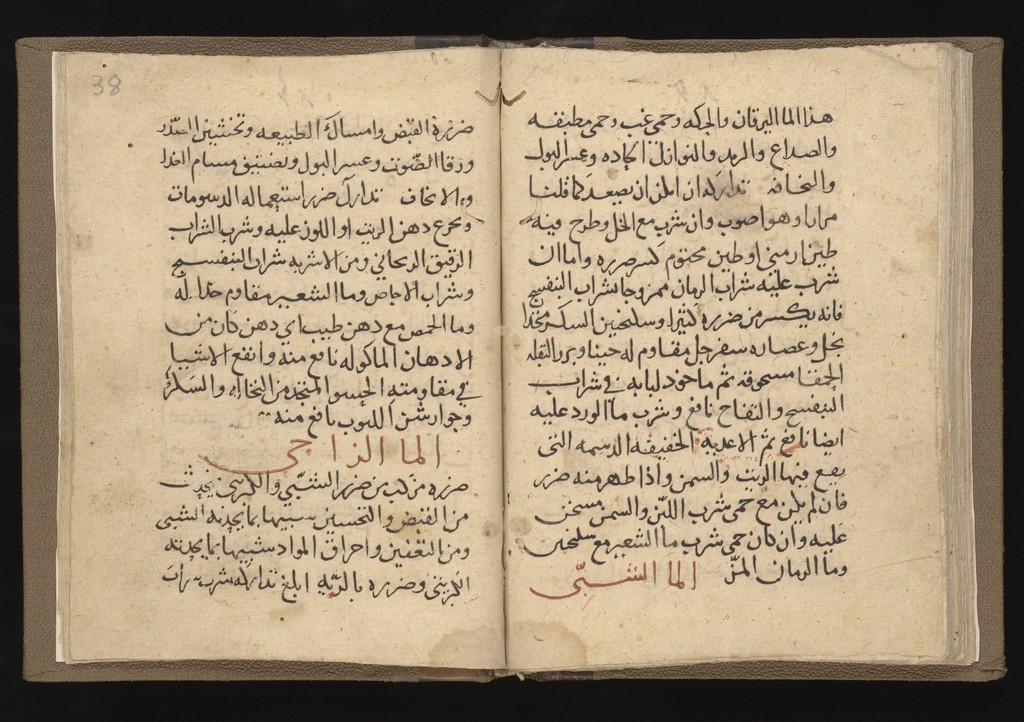 هذا الما اليرقان والحكه وحمى غب وحمى مطبقه
والصداع والرمد والنوازل الحاده وعسر البول
والنحافه تداركه ان امكن ان يصعد كما قلنا
مرارا وهو اصوب وان شرب مع الخل وطرح فيه
طين ارمنى او طين مختوم كسر ضرره واما ان
شرب عليه شراب الرمان ممزوجا بشراب البنفسج
فانه يكسر من ضرره كثيرا وسكنجبين السكر متخذا
بخل وعصاره سفرجل مقاوم له حينا وبزر البقله
الحمقا مسحوقه ثم ماخوذ لبابه فى شراب
البنفسج والتفاح نافع وشرب ما الورد عليه
ايضا نافع ثم الاغديه الخفيفه الدسمه التى
يقع فيها الزيت والسمن واذا ظهر منه ضرر
فان لم يكن مع حمى شرب اللبن والسمن مسخن
عليه وان كان حمى شرب ما الشعير مع سكنجبين
وما الرمان المز الما الشبّى
38
ضرره القبض وامساك الطبيعه وتخشين الصدر
ورقا الصوت وعسر البول وتضييق مسام الغدا
والانحاف تدارك ضرر استعماله الدسومات
وتجرع دهن الزيت او اللوز عليه وشرب الشراب
الرقيق الريحاني ومن الاشربه شراب البنفسج
وشراب الاجاص وما الشعير مقاوم جدا له
وما الحمص مع دهن طيب اي دهن كان من
الادهان الماكوله نافع منه وانفع الاشيا
في مقاومته الحسو المتخذ من النخاله والسكر
وجوارشن اللبوب نافع منه
الما الزاجى
ضرره مركب من ضرر الشبّي والكبريتى يحدث
من القبض والتخشين شبيها بما يحدثه الشبى
ومن التعفين واحراق المواد شبيها بما يحدثه
الكبريتى وضرره بالريه ابلغ تداركه شرب شراب